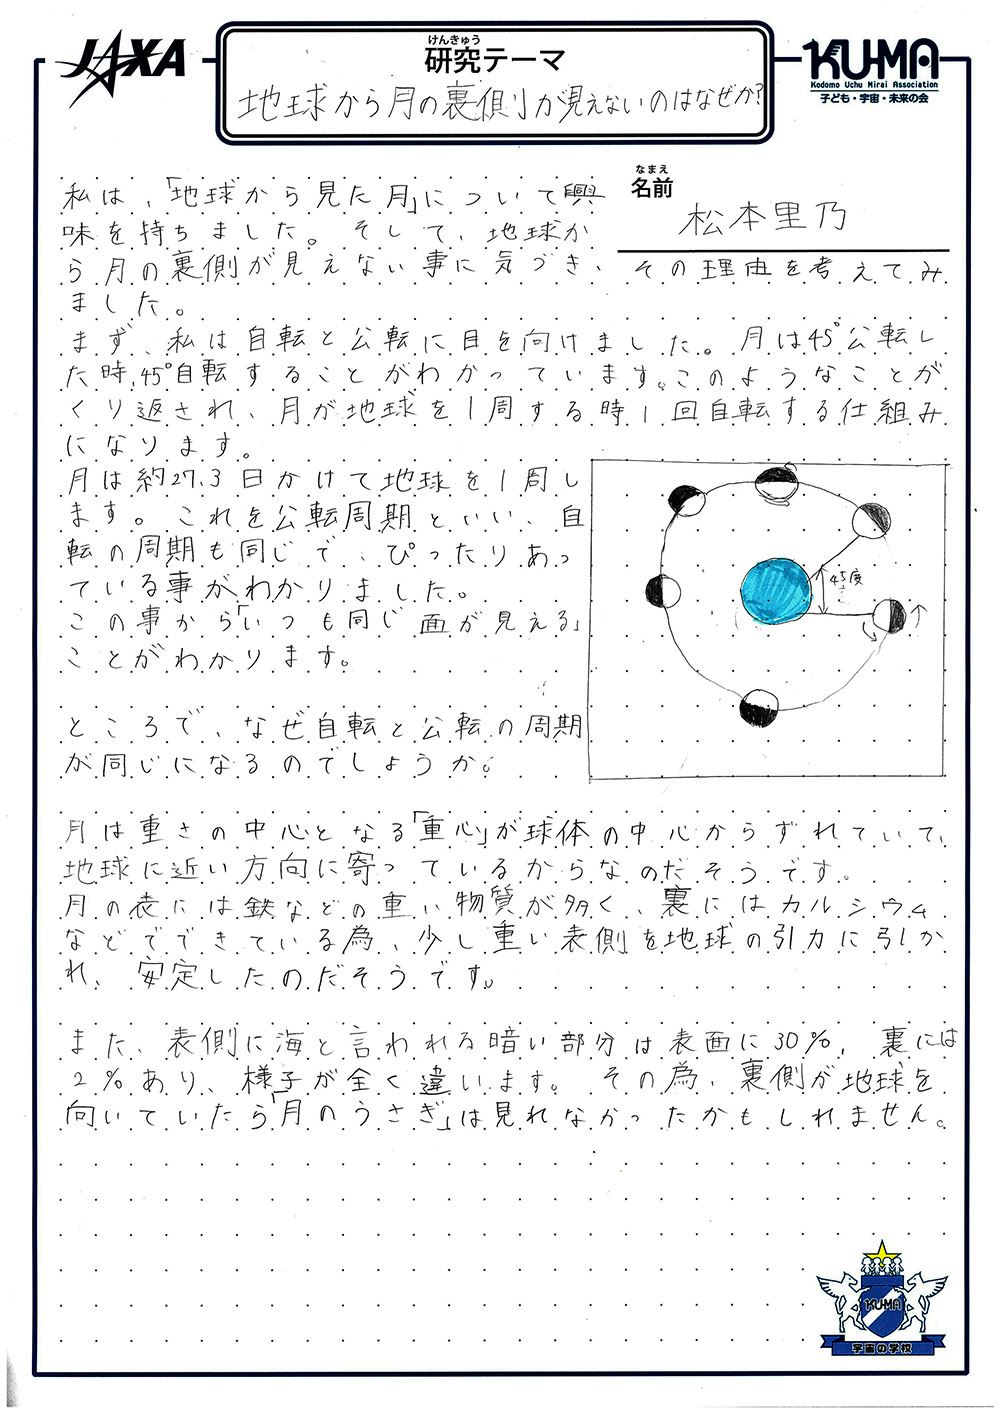 JAXA
けんきゅう
研究テーマ
KU-MA
Kodomo Uchu Mirai Association
子ども・宇宙・未来の会
地球から月の裏側が見えないのはなぜか?
なまえ
名前
松本里乃
私は、「地球から見た月」について興
味を持ちました。そして、地球か
ら月の裏側が見えない事に気づき、その理由を考えてみ
ました。
まず、私は自転と公転に目を向けました。月は45°公転し
た時、45°自転することがわかっています。このようなことが
くり返され、月が地球を1周する時1回自転する仕組み
になります。
月は約27.3日かけて地球を1周し
ます。これを公転周期といい、自
転の周期も同じで、ぴったりあっ
ている事がわかりました。
この事から「いつも同じ面が見える」
ことがわかります。
45度
ところで、なぜ自転と公転の周期
が同じになるのでしょうか。
月は重さの中心となる「重心」が球体の中心からずれていて、
地球に近い方向に寄っているからなのだそうです。
月の表には鉄などの重い物質が多く、裏にはカルシウム
などでできている為、少し重い表側を地球の引力に引か
れ、安定したのだそうです。
また、表側に海と言われる暗い部分は表面に30%、裏には
2%あり、様子が全く違います。その為、裏側が地球を
向いていたら「月のうさぎ」は見れなかったかもしれません。
KU-MA
宇宙の学校